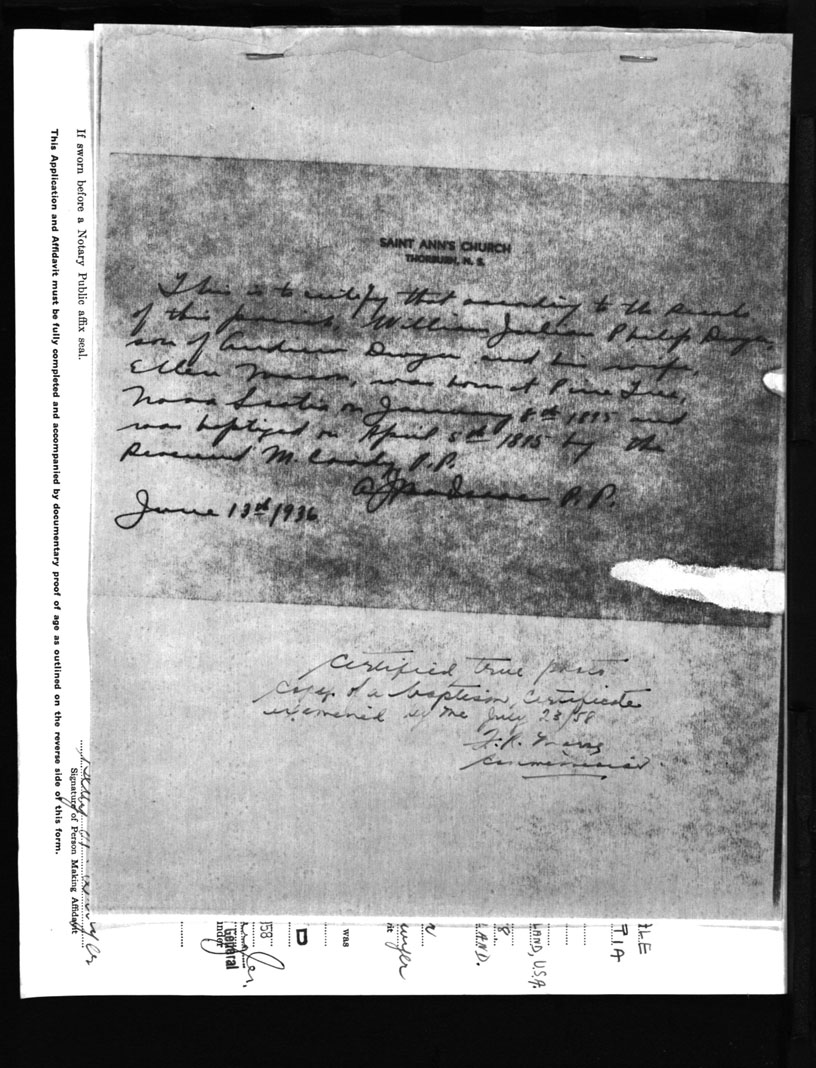 SAINT ANN'S CHURCH
THORBURN, N. S.
This is to certify that according to the records
of this parish, William Julian Philip Dwyer,
son of Andrew Dwyer and his wife,
Ellen was born at Pine Tree,
Nova Scotia on January 8th 1885 and
was baptized on April 5th 1885 by the
Reverend M. P.P.
P.P.
June 13th 1936
Certified true photo
copy of a baptism certificate
examined by me July 23/58
commissioner
If sworn before a Notary Public affix seal.
This Application and Affidavit must be fully completed and accompanied by documentary proof of age as outlined on the reverse side of this form.
Signature of Person Making Affidavit
LE
TIA
LAND, U.S.A.
8
LAND.
N
wyer
nt
was
D
958
General
inder